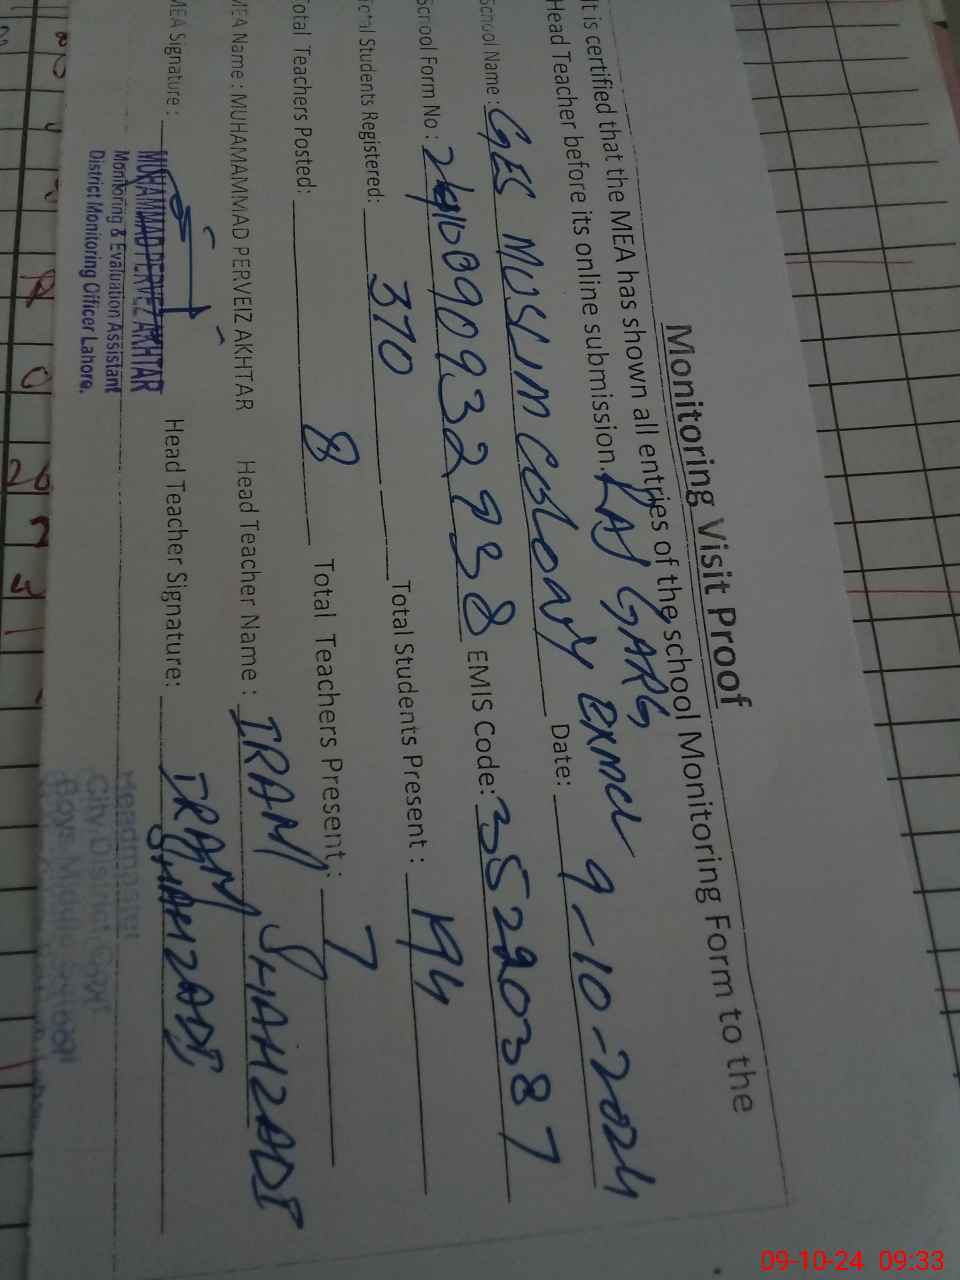 Monitoring Visit Proof
It is certified that the MEA has shown all entries of the school Monitoring Form to the
Head Teacher before its online submission. RAJ GARG
School Name: GES MUSLIM COLONY Date: 9-10-2024
School Form No: EMIS Code: 35220387
Total Students Registered: 370 Total Students Present: 194
Total Teachers Posted: 8 Total Teachers Present: 7
MEA Name: MUHAMAMMAD PERVEIZ AKHTAR Head Teacher Name: IRAM SHAHZADI
MEA Signature: Head Teacher Signature: IRAM SHAHZADI
MUHAMMAD PERVEZ AKHTAR
Monitoring & Evaluation Assistant
District Monitoring Officer Lahore.
Headmaster
City District Govt
Boys Middle School
09-10-24 09:33